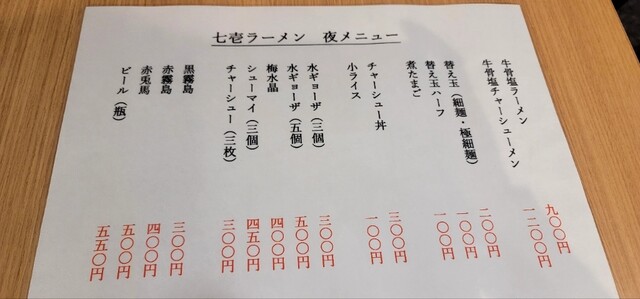 七壱ラーメン 夜メニュー
牛骨塩ラーメン 九〇〇円
牛骨塩チャーシューメン 一二〇〇円
替え玉(細麺・極細麺) 二〇〇円
替え玉ハーフ 一〇〇円
煮たまご 一〇〇円
チャーシュー丼 三〇〇円
小ライス 一〇〇円
水ギョーザ(三個) 三〇〇円
水ギョーザ(五個) 五〇〇円
梅水晶 四〇〇円
シューマイ(三個) 四五〇円
チャーシュー(三枚) 三〇〇円
黒霧島 三〇〇円
赤霧島 四〇〇円
赤兎馬 五〇〇円
ビール(瓶) 五五〇円